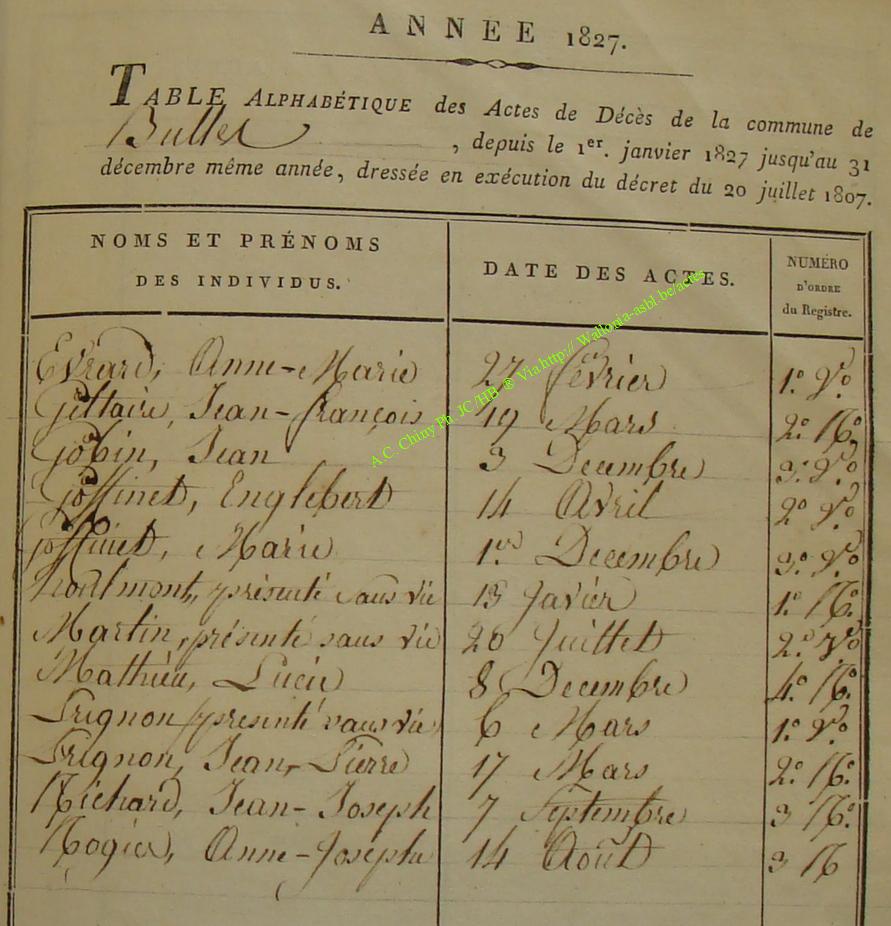 ANNEE 1827.
TABLE ALPHABÉTIQUE des Actes de Décès de la commune de
Bulles, depuis le 1er. janvier 1827 jusqu'au 31
décembre même année, dressée en exécution du décret du 20 juillet 1807.
NOMS ET PRÉNOMS DES INDIVIDUS. DATE DES ACTES. NUMÉRO D'ORDRE du Registre.
Evrard, Anne-Marie 27 février 1.o V.o
Gillaire, Jean-françois 19 Mars 2.o R.o
Gobin, Jean 3 Decembre 3.o V.o
Goffinet, Englebert 14 Avril 2.o V.o
Goffinet, Marie 1er Decembre 3.o V.o
présenté sans vie 13 Javier 1.o R.o
Martin, présenté sans vie 20 Juillet 2.o V.o
Mathieu, Lucie 8 Decembre 4.o R.o
Prignon, presenté sans vie 6 Mars 1.o V.o
Prignon, Jean-Pierre 17 Mars 2.o R.o
Richard, Jean-Joseph 7 Septembre 3 R.o
Rogier, Anne-Josephe 14 Août 3 R
A.C. Chiny Ph JC/HB ® Via http:// Wallonia-asbl.be/actes